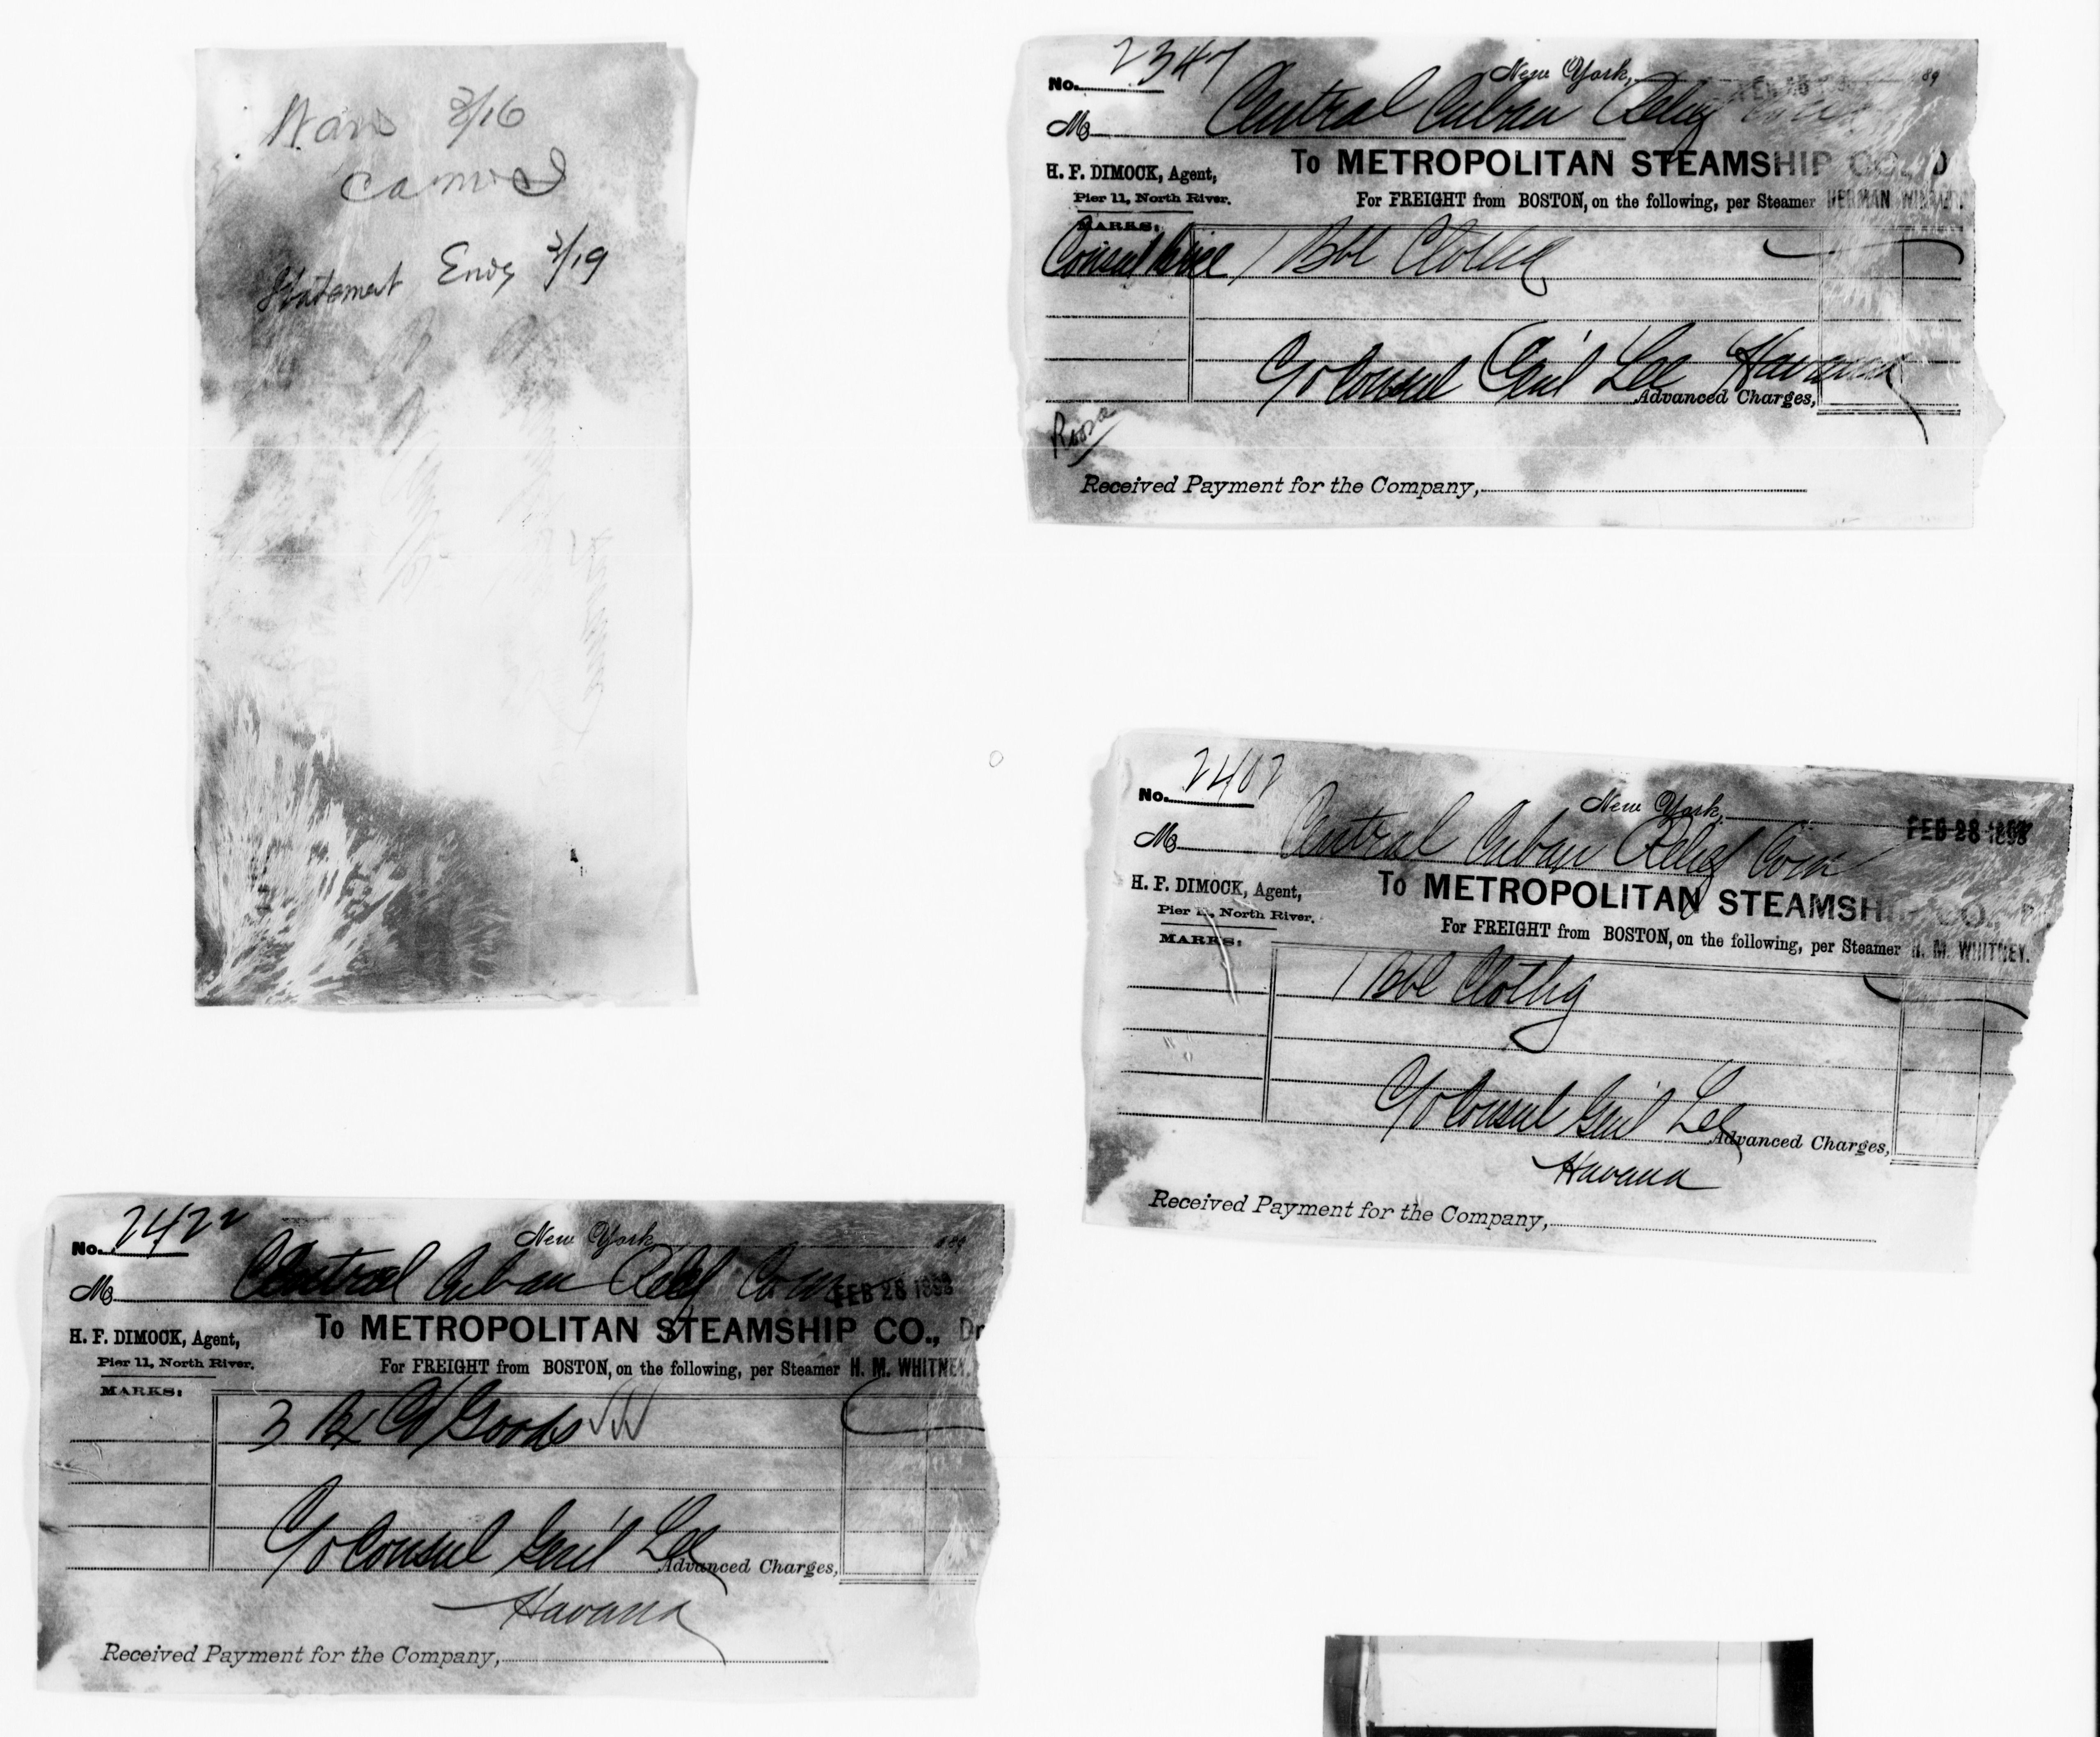 3/16
Statement Ends 3/19
No. 2347
New York, FEB 189
M Central Cuban Relief Com
To METROPOLITAN STEAMSHIP CO., D
H. F. DIMOCK, Agent,
Pier 11, North River.
For FREIGHT from BOSTON, on the following, per Steamer HERMAN WINTER.
MARKS:
Consul 1 Bbl Clothg
C/o Consul Gen'l Lee Havana
Advanced Charges,
Received Payment for the Company,
No. 2402
New York, FEB 28 1898
M Central Cuban Relief Com
To METROPOLITAN STEAMSHIP CO., D
H. F. DIMOCK, Agent,
Pier 11, North River.
For FREIGHT from BOSTON, on the following, per Steamer H. M. WHITNEY.
MARKS:
1 Bbl Clothg
C/o Consul Gen'l Lee
Advanced Charges,
Havana
Received Payment for the Company,
No. 2422
New York, 189
M Central Cuban Relief Com FEB 28 1898
To METROPOLITAN STEAMSHIP CO., Dr
H. F. DIMOCK, Agent,
Pier 11, North River.
For FREIGHT from BOSTON, on the following, per Steamer H. M. WHITNEY.
MARKS:
3 Bx Goods
C/o Consul Gen'l Lee
Advanced Charges,
Havana
Received Payment for the Company,